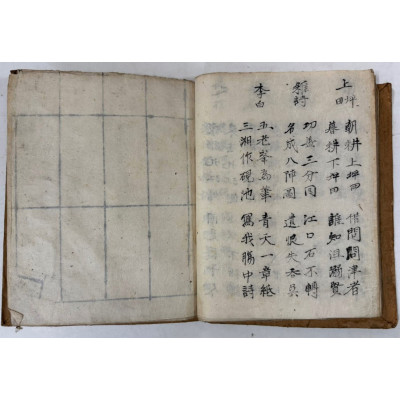 上坪田
朝耕上坪田 借問問津者
暮耕下坪田 誰知沮溺賢
雜詩
功盖三分国 江口石不轉
名成八陣圖 遺恨失吞吳
李白
五老峯為筆 青天一章紙
三湘作硯池 寫我腸中詩